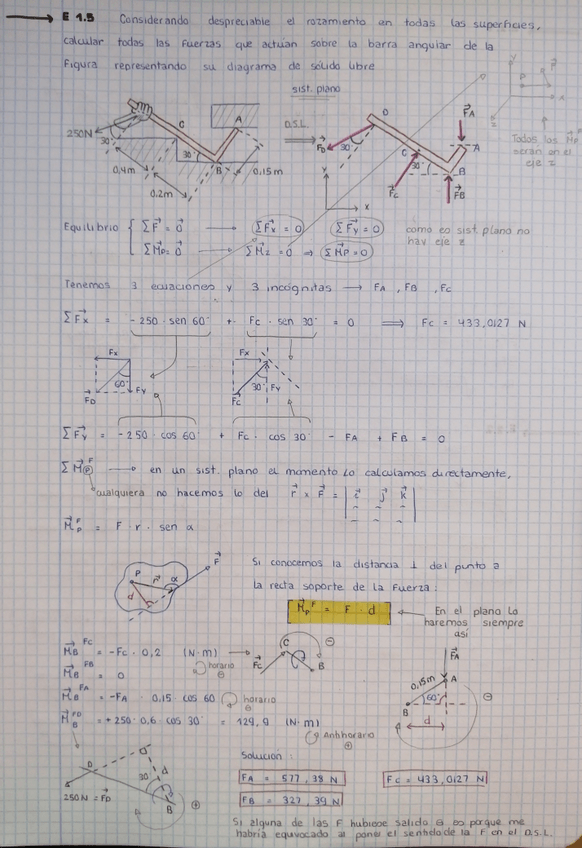 E 1.5 Considerando despreciable el rozamiento en todas las superficies,
calcular todas las fuerzas que actúan sobre la barra angular de la
Figura representando su diagrama de sólido libre
sist. plano
250N
30°
C
A
B
30°
0.4m
0.2m
0.15m
D.S.L.
D
F_D
30°
C
30°
F_C
F_A
A
B
F_B
y
x
y
P
F
z
Todos los M_P
serán en el
eje z
Equilibrio { ΣF = 0 → ΣFx = 0 ΣFy = 0
ΣM_P = 0 → ΣMz = 0 ⇒ ΣM_P = 0
como es sist. plano no
hay eje z
Tenemos 3 ecuaciones y 3 incógnitas → FA , FB , FC
ΣFx = - 250 · sen 60° + Fc · sen 30° = 0 ⟹ Fc = 433,0127 N
Fx
60°
Fy
F_D
Fx
30°
Fy
Fc
ΣFy = - 250 · cos 60° + Fc · cos 30° - FA + FB = 0
ΣM_P^F → en un sist. plano el momento lo calculamos directamente,
cualquiera no hacemos lo del r x F = | i j k |
M_P^F = F · r · sen α
P
r
α
F
d
Si conocemos la distancia ⊥ del punto a
la recta soporte de la Fuerza :
M_P^F = F · d
En el plano lo
haremos siempre
así
M_B^Fc = -Fc · 0,2 (N·m) →
horario ⊖
C
Fc
B
⊖
M_B^FB = 0
M_B^FA = -FA · 0,15 · cos 60
horario ⊖
M_B^FD = +250 · 0,6 · cos 30° = 129,9 (N·m)
Antihorario ⊕
FA
0,15m
A
60°
B
d
⊖
D
30
d
250N = F_D
B
⊕
Solución :
FA = 577,38 N
Fc = 433,0127 N
FB = 327,39 N
Si alguna de las F hubiese salido ⊖ es porque me
habría equivocado al poner el sentido de la F en el D.S.L.